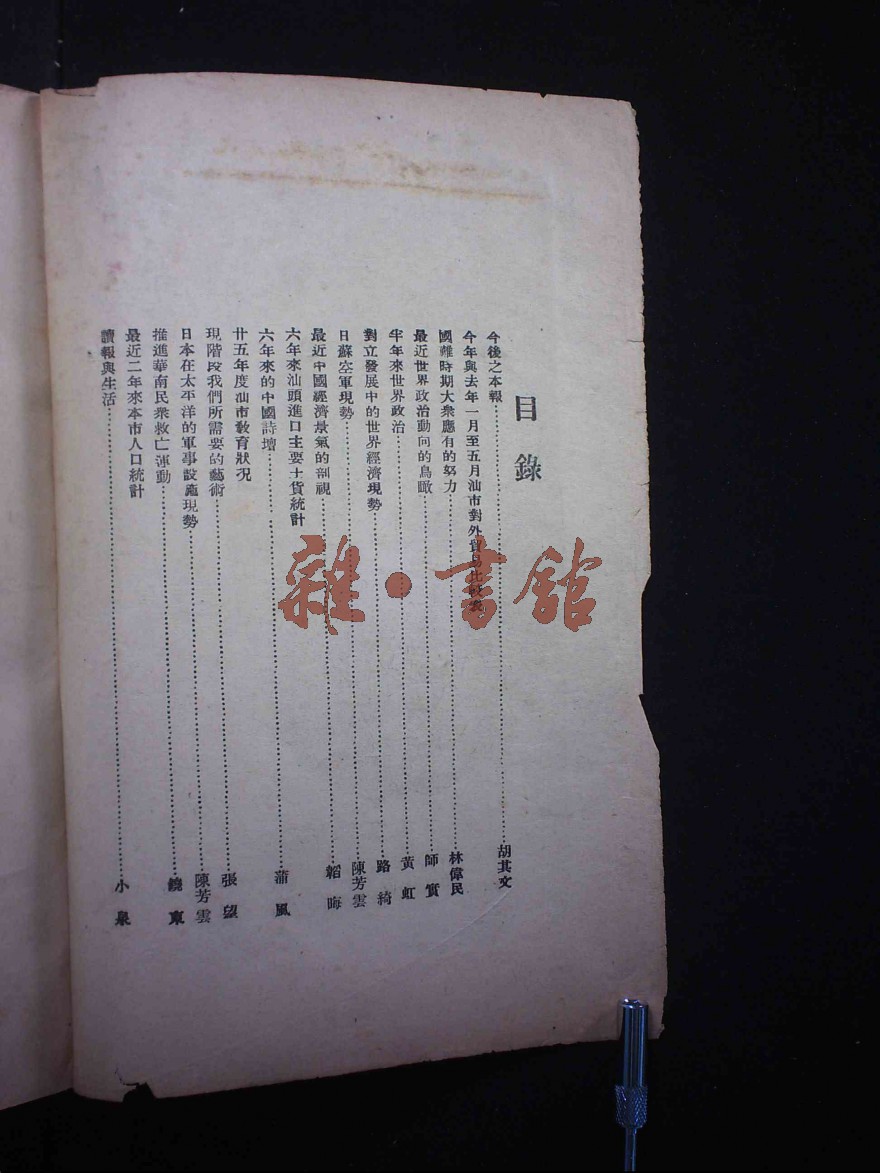 目錄
今後之本報……胡其文
今年與去年一月至五月汕市對外貿易比較表
國難時期大衆應有的努力……林偉民
最近世界政治動向的鳥瞰……師實
半年來世界政治……黃虹
對立發展中的世界經濟現勢……路綺
日蘇空軍現勢……陳芳雲
最近中國經濟景氣的剖視……韜晦
六年來汕頭進口主要土貨統計
六年來的中國詩壇……蒲風
廿五年度汕市敎育狀况
現階段我們所需要的藝術……張望
日本在太平洋的軍事設施現勢……陳芳雲
推進華南民衆救亡運動……饒東
最近二年來本市人口統計
讀報與生活……小泉
雜·書館